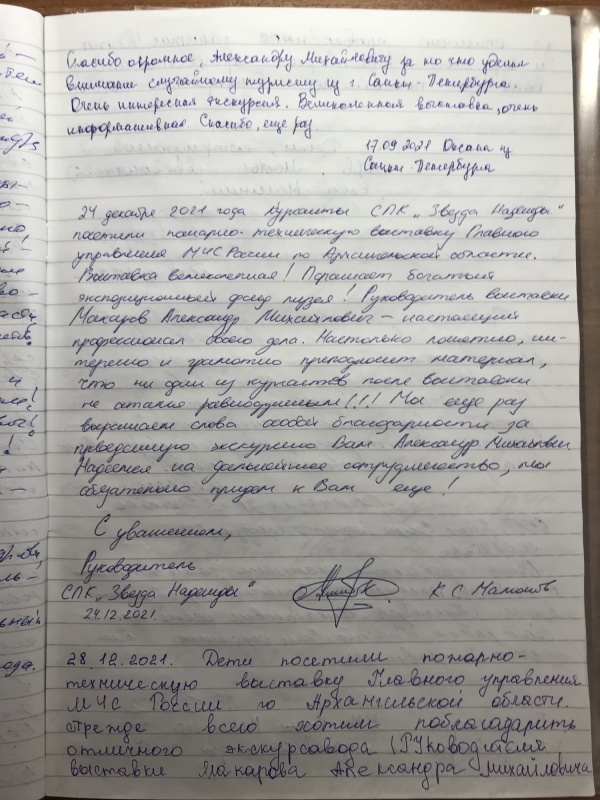 Спасибо огромное, Александру Михайловичу за то что уделил
внимание случайному туристу из г. Санкт-Петербурга.
Очень интересная экскурсия. Великолепная выставка, очень
информативная. Спасибо, еще раз.
17.09.2021 Оксана из
Санкт-Петербурга
24 декабря 2021 года курсанты СПК „Звезда Надежды“
посетили пожарно-техническую выставку Главного
управления МЧС России по Архангельской области.
Выставка великолепная! Поражает богатый
экспозиционный фонд музея! Руководитель выставки
Макаров Александр Михайлович – настоящий
профессионал своего дела. Настолько понятно, ин-
тересно и грамотно преподносит материал,
что ни один из курсантов после выставки
не остался равнодушным!!! Мы еще раз
выражаем слова особой благодарности за
проведенную экскурсию Вам Александр Михайлович
Надеемся на дальнейшее сотрудничество, мы
обязательно придем к Вам еще!
С уважением,
Руководитель
СПК „Звезда Надежды“ К.С.
24.12.2021.
28.12.2021. Дети посетили пожарно-
техническую выставку Главного управления
МЧС России по Архангельской области.
Прежде всего хотим поблагодарить
отличного экскурсавода (Руководителя
выставки Макарова Александра Михайловича